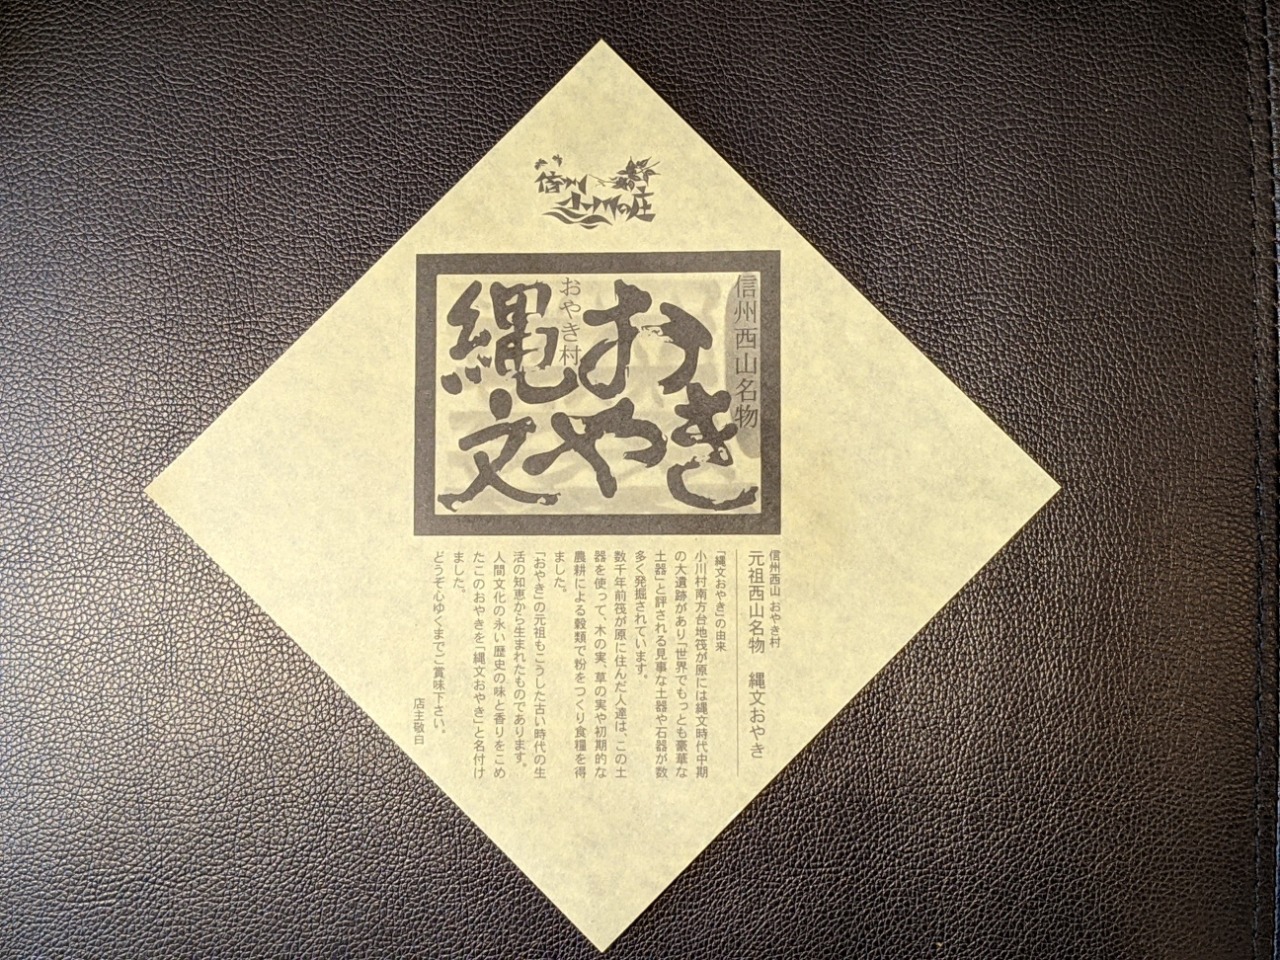 信州
小川の庄
信州西山名物
おやき
おやき村
縄文
信州西山 おやき村
元祖西山名物 縄文おやき
「縄文おやき」の由来
小川村南方台地筏が原には縄文時代中期
の大遺跡があり「世界でもっとも豪華な
土器」と評される見事な土器や石器が数
多く発掘されています。
数千年前筏が原に住んだ人達は、この土
器を使って、木の実、草の実や初期的な
農耕による穀類で粉をつくり食糧を得
ました。
「おやき」の元祖もこうした古い時代の生
活の知恵から生まれたものであります。
人間文化の永い歴史の味と香りをこめ
たこのおやきを「縄文おやき」と名付け
ました。
どうぞ心ゆくまでご賞味下さい。
店主敬白